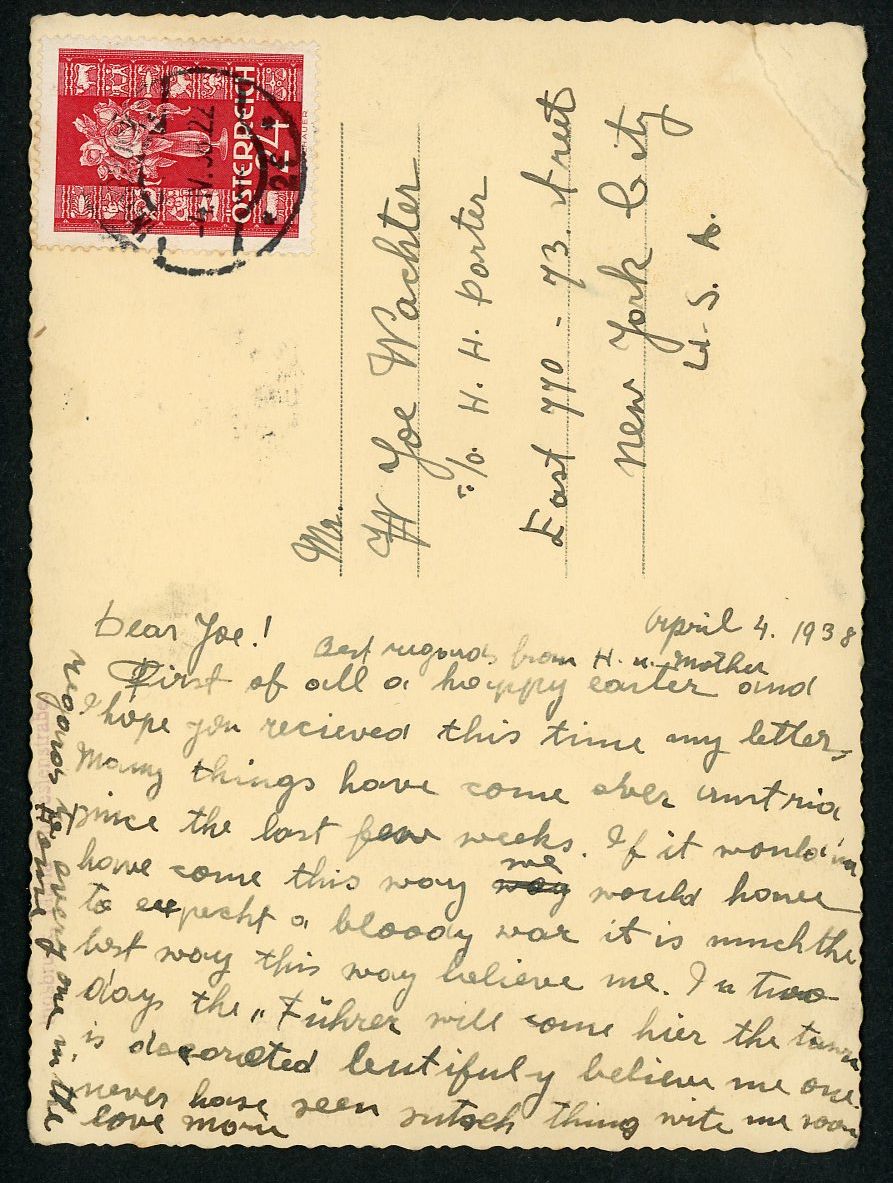 ÖSTERREICH
24
Mr.
W Joe Wachter
c/o. H. H. Porter
East 770 - 73. street
New York City
U. S. A.
Dear Joe!
April 4. 1938
Best regards from H. u. Mother
First of all a happy easter and
I hope you recieved this time my letter,
Many things have come over austria
since the last few weeks. If it would'n
have come this way we would have
to expecht a bloody war it is much the
best way this way believe me. In two
days the „Führer will come hier the
is decorated beutifuly believe me one
never have seen sutsch thing write me soon
love
regards to every one in the
Home